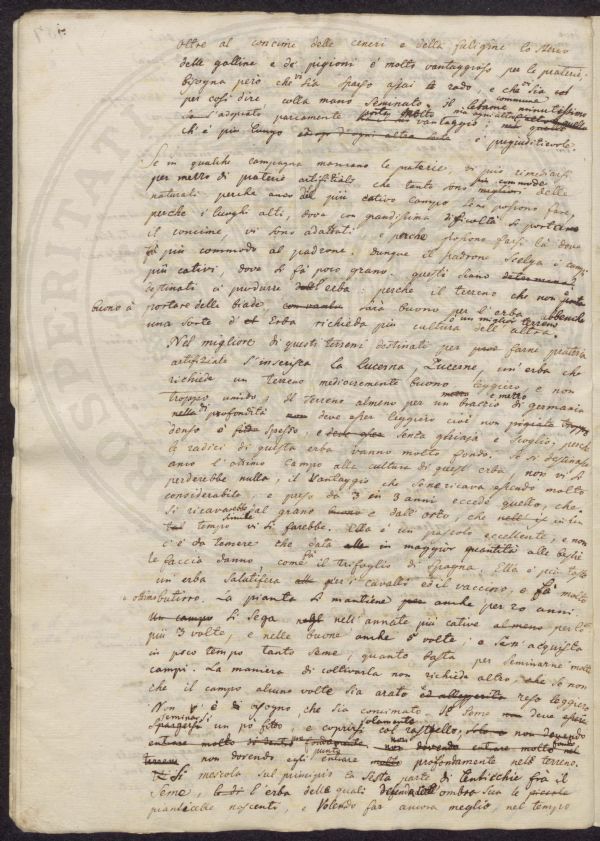 oltre al concime delle ceneri e della fuligine lo sterco
delle galline e de' pigioni è molto vantaggioso per le praterie:
bisogna però che vi sia sparso assai rado, e che sia
per così dire colla mano seminato. il letame comune minutissimo
parcamente vantaggio,
ch'è più lungo è pregiuditievole.
Se in qualche campagna mancano le praterie, si può rimediarsi
per mezzo di praterie artifiziali che tanto sono più commode migliori delle
naturali perche anco del più cativo campo si possono fare,
perche i luoghi alti, dove con grandissima dificoltà si porta
il concime, vi sono adattati e perche possono farsi là dove
è più commodo al padrone. dunque il padrone scelga i campi
più cativi, dove si fà poco grano. questi siano
destinati a produrre erba: perche il terreno che non
buono à portare delle biade sarà buono per l'erba, abbenche
una sorte d' Erba richieda più cultura dell' altra. o un miglior terreno
Nel migliore di questi terreni destinati per farne prateria
artifiziale s'inserisca la Lucerna, Luzerne, un' erba che
richiede un terreno mediocremente buono leggiero e non
troppo umido; Il terreno almeno per un braccio e mezzo di germania
di profondità deve esser leggiero cioè non troppo
denso è spesso, e senza ghiaja e scoglio; perche
le radici di questa erba vanno molto fondo. Se si destinasse
anco l'ottimo campo alla cultura di quest' erba, non vi si
perderebbe nulla; il vantaggio che se ne ricava essendo molto
considerabile, e preso da 3 in 3 anni eccede quello, che
si ricavarebbe dal grano e dall' orto, che in un
simile tempo vi si farebbe. Ella è un pascolo eccellente, e non
c'è da temere che data in maggior quantità alle bestie
le faccia danno come fà il trifoglio di Spagna. Ella è più tosto
un erba salutifera per i cavalli ed il vaccino, e fà molto
e ottimo butirro. La pianta si mantiene anche per 20 anni
si sega nell' annate più cative almeno per lo
più 3 volte, e nelle buone anche 5 volte; e se n' acquista
in poco tempo tanto seme, quanto basta per seminarne molti
campi. La maniera di coltivarla non richiede altro, che se non
che il campo alcune volte sia arato reso leggiero
Non v'è di bisogno, che sia concimato. Il seme deve essere
seminarsi un pò fitto, e coprirsi solamente col rastrello,
entrare molto
terreno non dovendo egli entrare punto profondamente nel terreno.
Si mescola sul principio la sesta parte di lenticchie frà il
seme, l'erba delle quali difenda coll' ombra sua le piccole
pianticelle nascenti, e volendo far ancora meglio, nel tempo